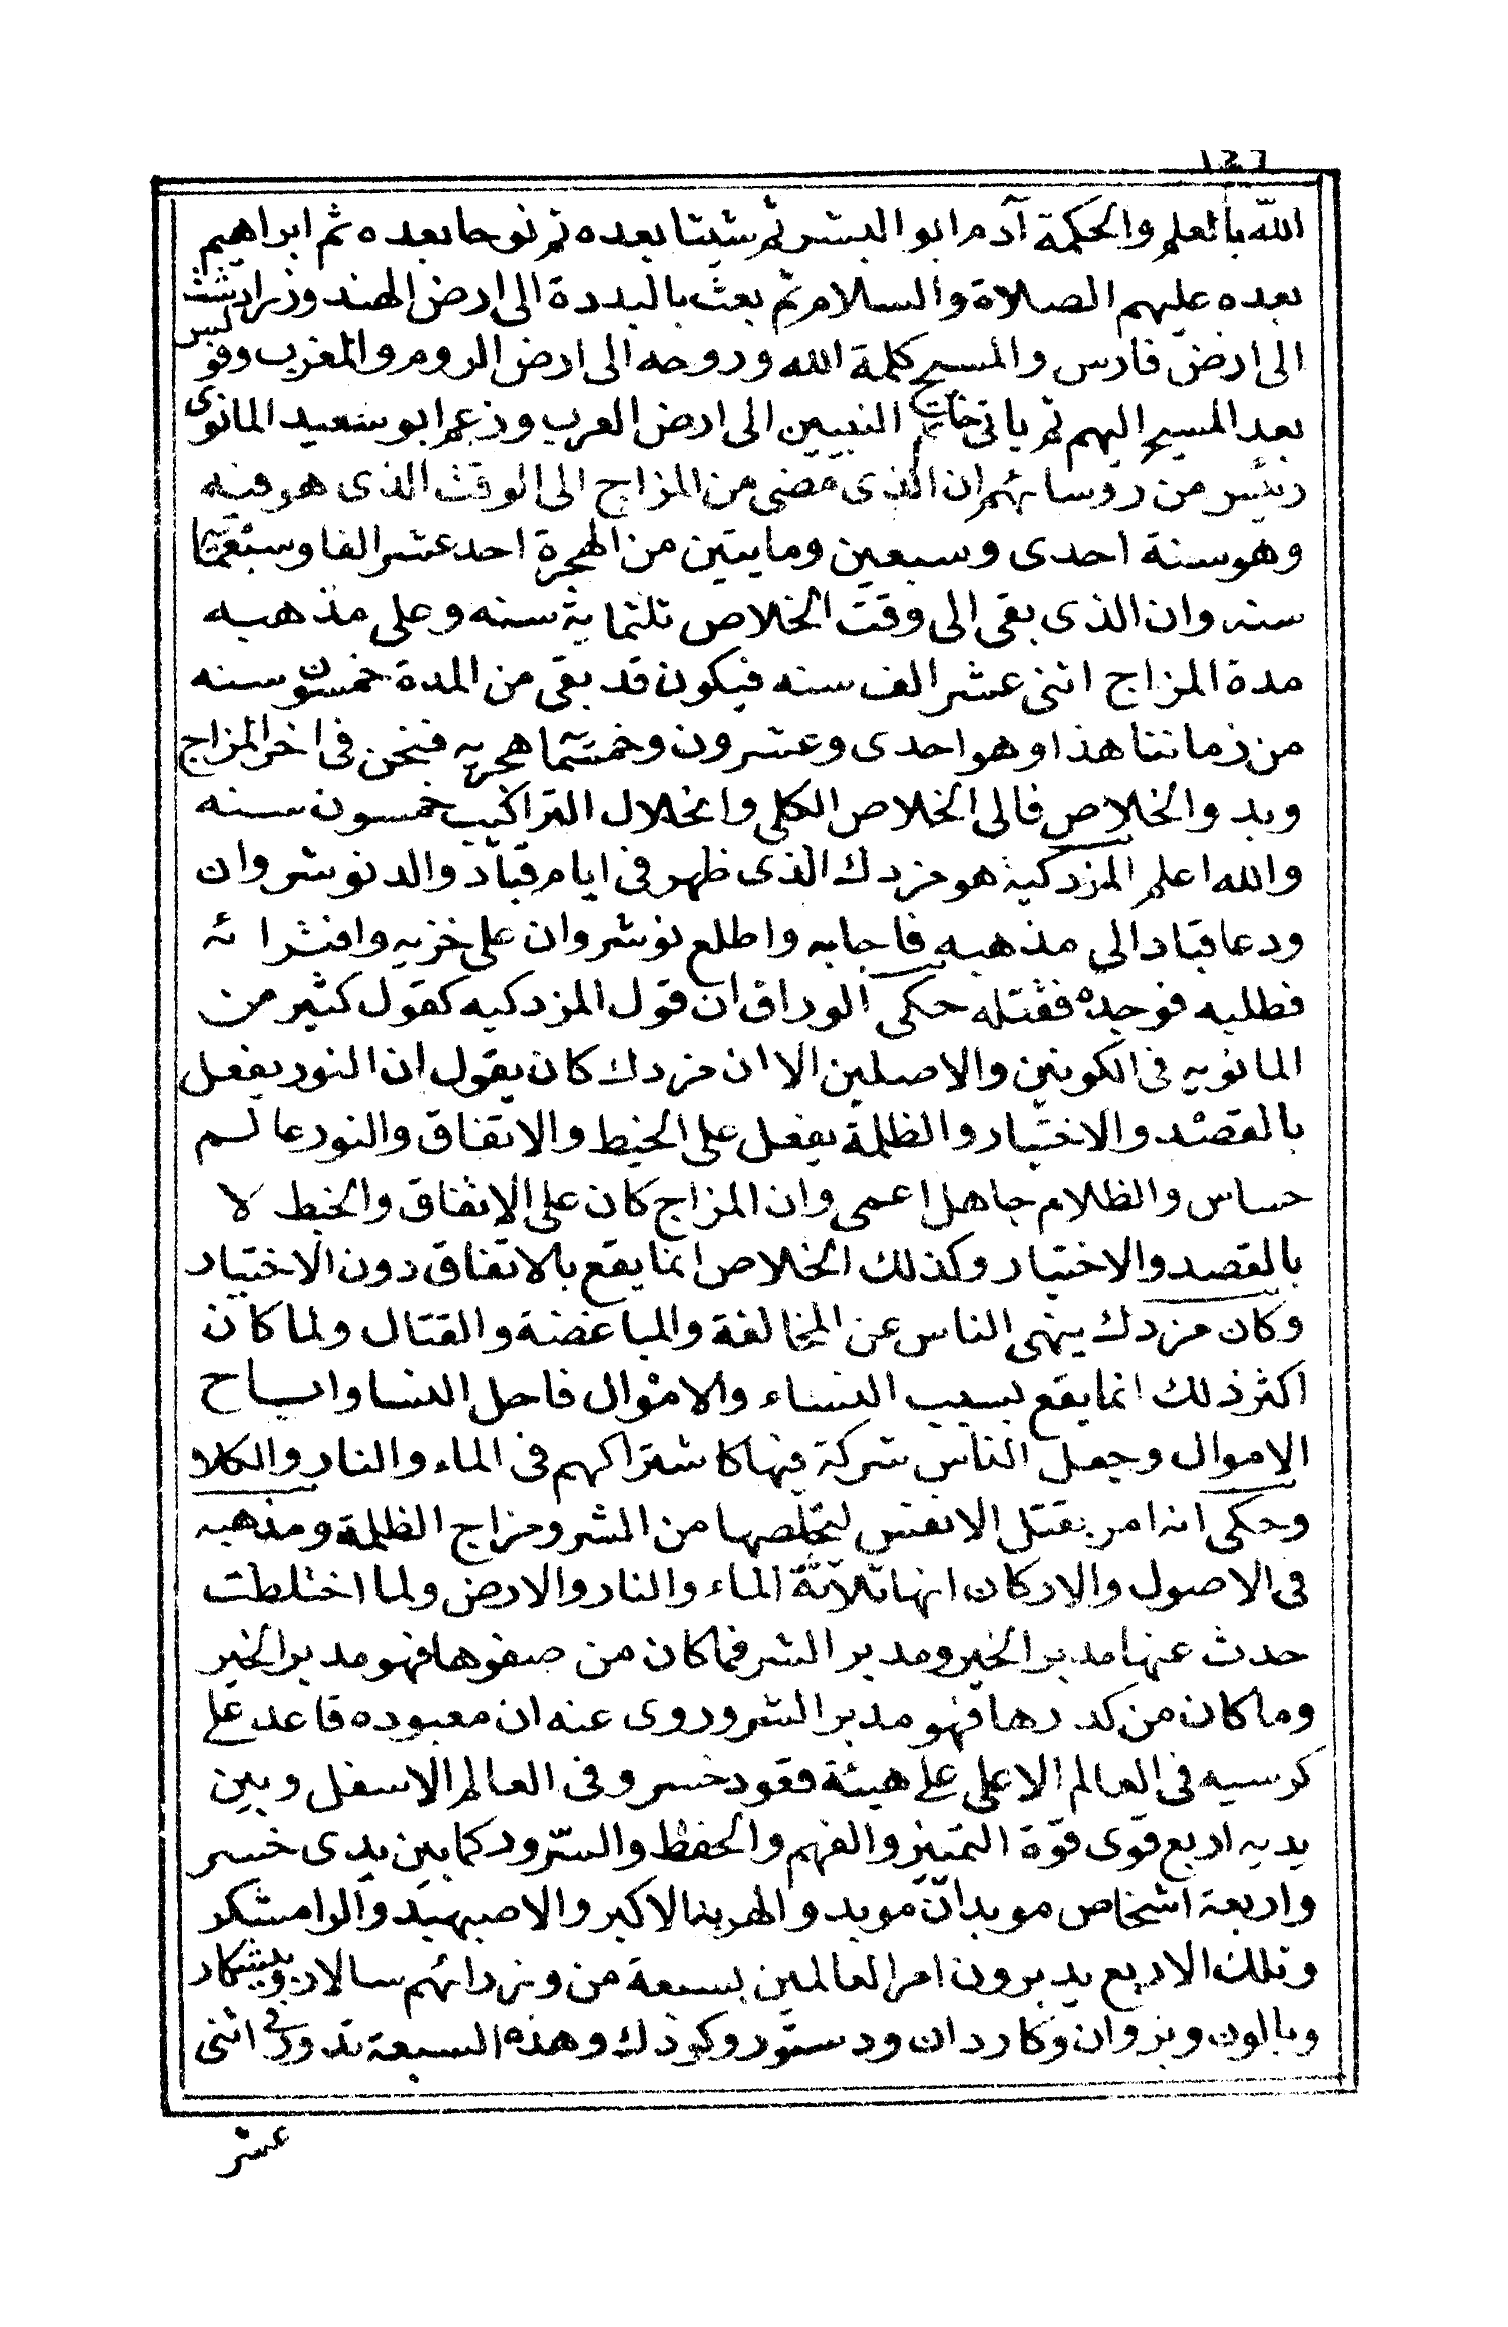 ١٣٦
الله بالعلم والحكمة آدم ابو البشر ثم شيثا بعده ثم نوحا بعده ثم ابراهيم
بعده عليهم الصلاة والسلام ثم بعث بالبددة الى ارض الهند وزرادشت
الى ارض فارس والمسيح كلمة الله وروحه الى ارض الروم والمغرب وفولس
بعد المسيح اليهم ثم ياتى خاتم النبيين الى ارض العرب وزعم ابو سعيد المانوى
رئيس من روسائهم ان الذى مضى من المزاج الى الوقت الذى هو فيه
وهو سنة احدى وسبعين ومايتين من الهجرة احد عشر الفا وسبعمايه
سنه وان الذى بقى الى وقت الخلاص ثلثماية سنه وعلى مذهبه
مدة المزاج اثنى عشر الف سنه فيكون قد بقى من المدة خمسون سنه
من زماننا هذا وهو احدى وعشرون وخمسمآ هجريه فنحن فى اخر المزاج
وبدو الخلاص فالى الخلاص الكلى وانحلال التراكيب خمسون سنه
والله اعلم المزدكية هو مزدك الذى ظهر فى ايام قباد والد نوشروان
ودعا قباد الى مذهبه فاجابه واطلع نوشروان على خزيه وافترائه
فطلبه فوجده فقتله حكى الوراق ان قول المزدكيه كقول كثير من
المانويه فى الكونين والاصلين الا ان مزدك كان يقول ان النور يفعل
بالقصد والاختيار والظلمة يفعل على الخبط والاتفاق والنور عالم
حساس والظلام جاهل اعمى وان المزاج كان على الاتفاق والخبط لا
بالقصد والاختيار وكذلك الخلاص انما يقع بالاتفاق دون الاختيار
وكان مزدك ينهى الناس عن المخالفة والمباغضة والقتال ولما كان
اكثر ذلك انما يقع بسبب النساء والاموال فاحل النسا واباح
الاموال وجعل الناس شركة فيها كاشتراكهم فى الماء والنار والكلا
وحكى انه امر بقتل الانفس ليخلصها من الشر ومزاج الظلمة ومذهبه
فى الاصول والاركان انها ثلاثة الماء والنار والارض ولما اختلطت
حدث عنها مدبر الخير ومدبر الشر فما كان من صفوها فهو مدبر الخير
وما كان من كدرها فهو مدبر الشر وروى عنه ان معبوده قاعد على
كرسيه فى العالم الاعلى على هيئة قعود خسرو فى العالم الاسفل وبين
يديه اربع قوى قوة التمييز والفهم والحفظ والسرور كما بين يدى خسر
واربعة اشخاص موبدان موبد والهربد الاكبر والاصبهيد والرامشكر
وتلك الاربع يدبرون امر العالمين بسبعة من وزرائهم سالار وبيشكار
وبالون وبزوان وكاردان ودستور وكوذك وهذه السبعة تدور فى اثنى
عشر